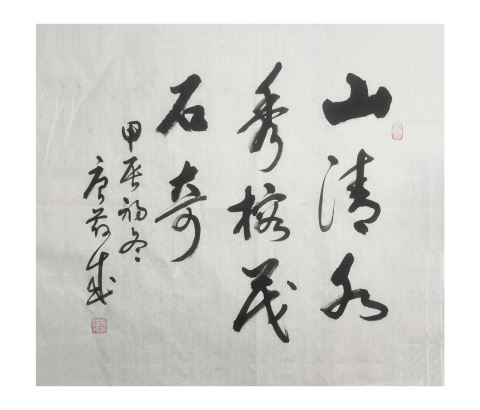 山清水
秀榕茂
石奇
甲辰初冬